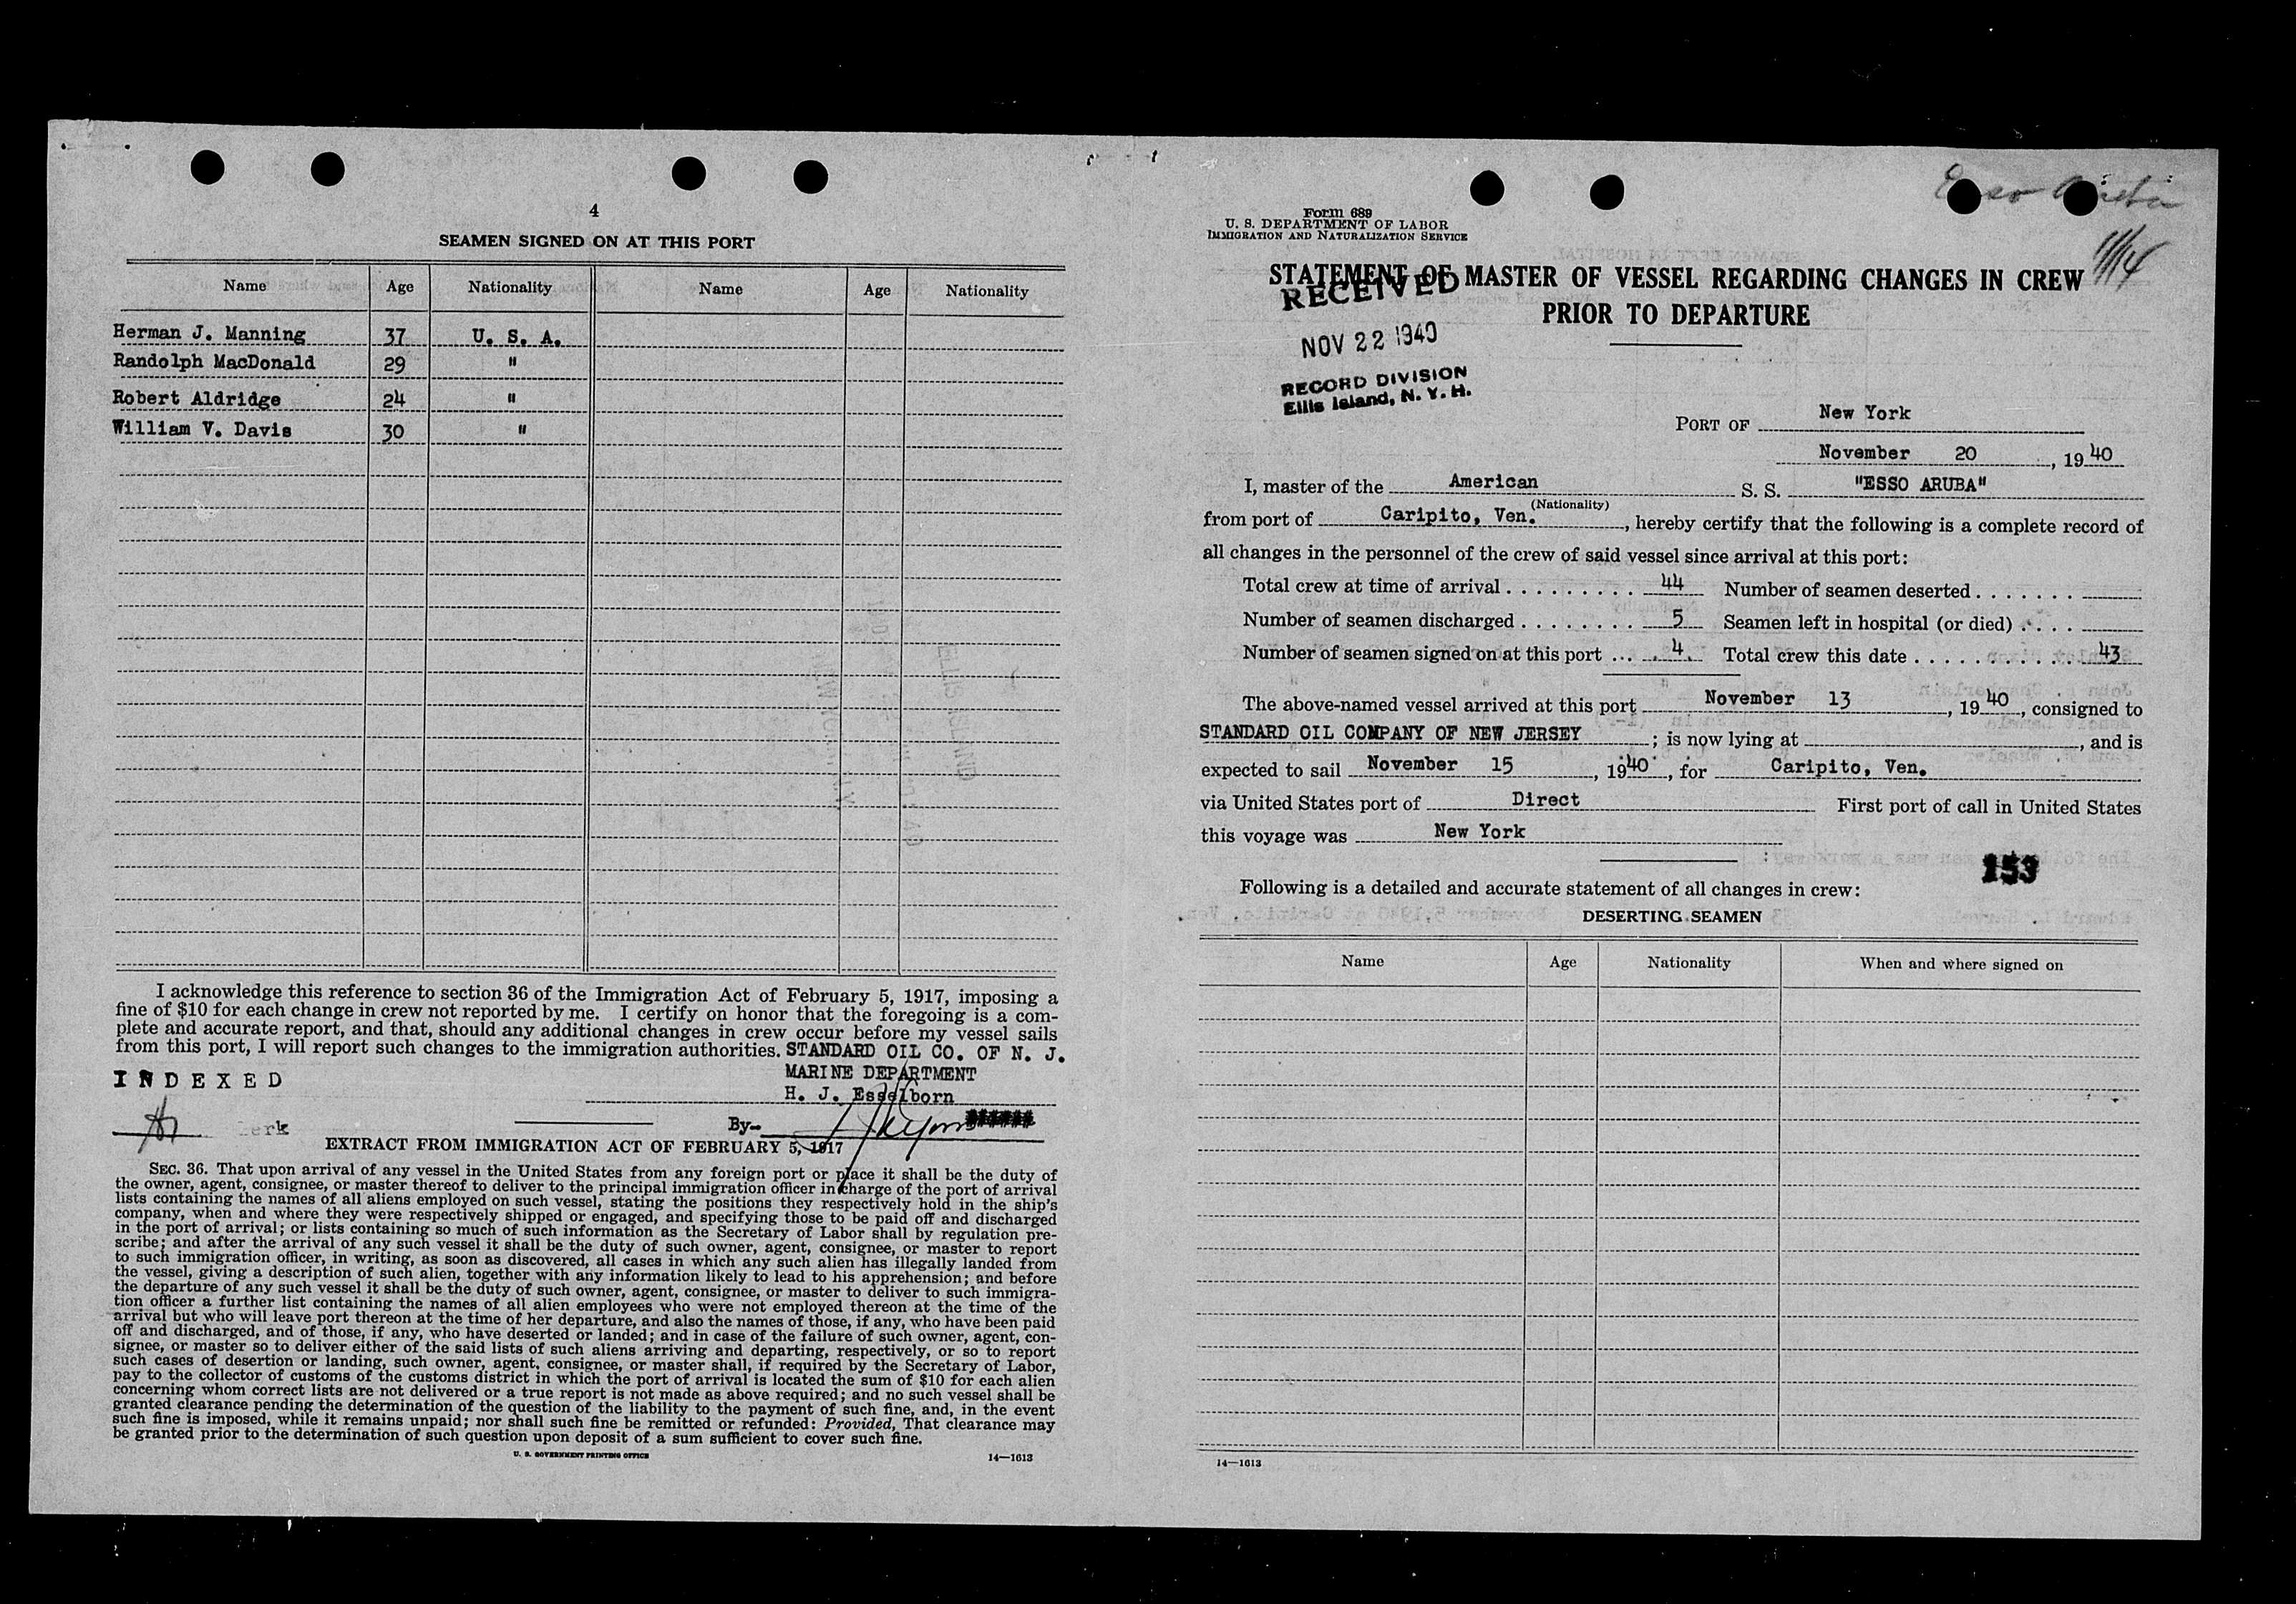 4
SEAMEN SIGNED ON AT THIS PORT
Name Age Nationality Name Age Nationality
Herman J. Manning 37 U. S. A.
Randolph MacDonald 29 "
Robert Aldridge 24 "
William V. Davis 30 "
I acknowledge this reference to section 36 of the Immigration Act of February 5, 1917, imposing a
fine of $10 for each change in crew not reported by me. I certify on honor that the foregoing is a com-
plete and accurate report, and that, should any additional changes in crew occur before my vessel sails
from this port, I will report such changes to the immigration authorities. STANDARD OIL CO. OF N. J.
MARINE DEPARTMENT
INDEXED
H. J. Esselborn
By
EXTRACT FROM IMMIGRATION ACT OF FEBRUARY 5, 1917
SEC. 36. That upon arrival of any vessel in the United States from any foreign port or place it shall be the duty of
the owner, agent, consignee, or master thereof to deliver to the principal immigration officer in charge of the port of arrival
lists containing the names of all aliens employed on such vessel, stating the positions they respectively hold in the ship's
company, when and where they were respectively shipped or engaged, and specifying those to be paid off and discharged
in the port of arrival; or lists containing so much of such information as the Secretary of Labor shall by regulation pre-
scribe; and after the arrival of any such vessel it shall be the duty of such owner, agent, consignee, or master to report
to such immigration officer, in writing, as soon as discovered, all cases in which any such alien has illegally landed from
the vessel, giving a description of such alien, together with any information likely to lead to his apprehension; and before
the departure of any such vessel it shall be the duty of such owner, agent, consignee, or master to deliver to such immigra-
tion officer a further list containing the names of all alien employees who were not employed thereon at the time of the
arrival but who will leave port thereon at the time of her departure, and also the names of those, if any, who have been paid
off and discharged, and of those, if any, who have deserted or landed; and in case of the failure of such owner, agent, con-
signee, or master so to deliver either of the said lists of such aliens arriving and departing, respectively, or so to report
such cases of desertion or landing, such owner, agent, consignee, or master shall, if required by the Secretary of Labor,
pay to the collector of customs of the customs district in which the port of arrival is located the sum of $10 for each alien
concerning whom correct lists are not delivered or a true report is not made as above required; and no such vessel shall be
granted clearance pending the determination of the question of the liability to the payment of such fine, and, in the event
such fine is imposed, while it remains unpaid; nor shall such fine be remitted or refunded: Provided, That clearance may
be granted prior to the determination of such question upon deposit of a sum sufficient to cover such fine.
U. S. GOVERNMENT PRINTING OFFICE 14—1613
Form 689
U. S. DEPARTMENT OF LABOR
IMMIGRATION AND NATURALIZATION SERVICE
11/14
STATEMENT OF MASTER OF VESSEL REGARDING CHANGES IN CREW
PRIOR TO DEPARTURE
RECEIVED
NOV 22 1940
RECORD DIVISION
Ellis Island, N. Y. H.
PORT OF New York
November 20, 1940
I, master of the American S. S. "ESSO ARUBA"
(Nationality)
from port of Caripito, Ven., hereby certify that the following is a complete record of
all changes in the personnel of the crew of said vessel since arrival at this port:
Total crew at time of arrival 44 Number of seamen deserted
Number of seamen discharged 5 Seamen left in hospital (or died)
Number of seamen signed on at this port 4 Total crew this date 43
The above-named vessel arrived at this port November 13, 1940, consigned to
STANDARD OIL COMPANY OF NEW JERSEY; is now lying at , and is
expected to sail November 15, 1940, for Caripito, Ven.
via United States port of Direct First port of call in United States
this voyage was New York
153
Following is a detailed and accurate statement of all changes in crew:
DESERTING SEAMEN
Name Age Nationality When and where signed on
14—1613